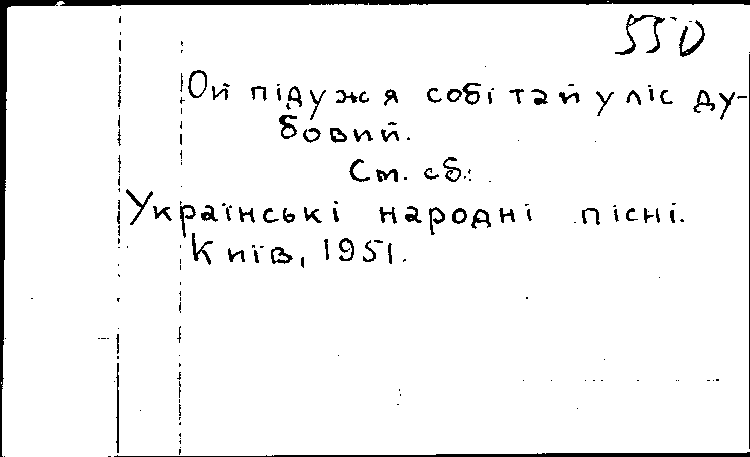 550
Ой підуж я собі тай у ліс ду-
бовий.
См. сб.:
Українські народні пісні.
Київ, 1951.